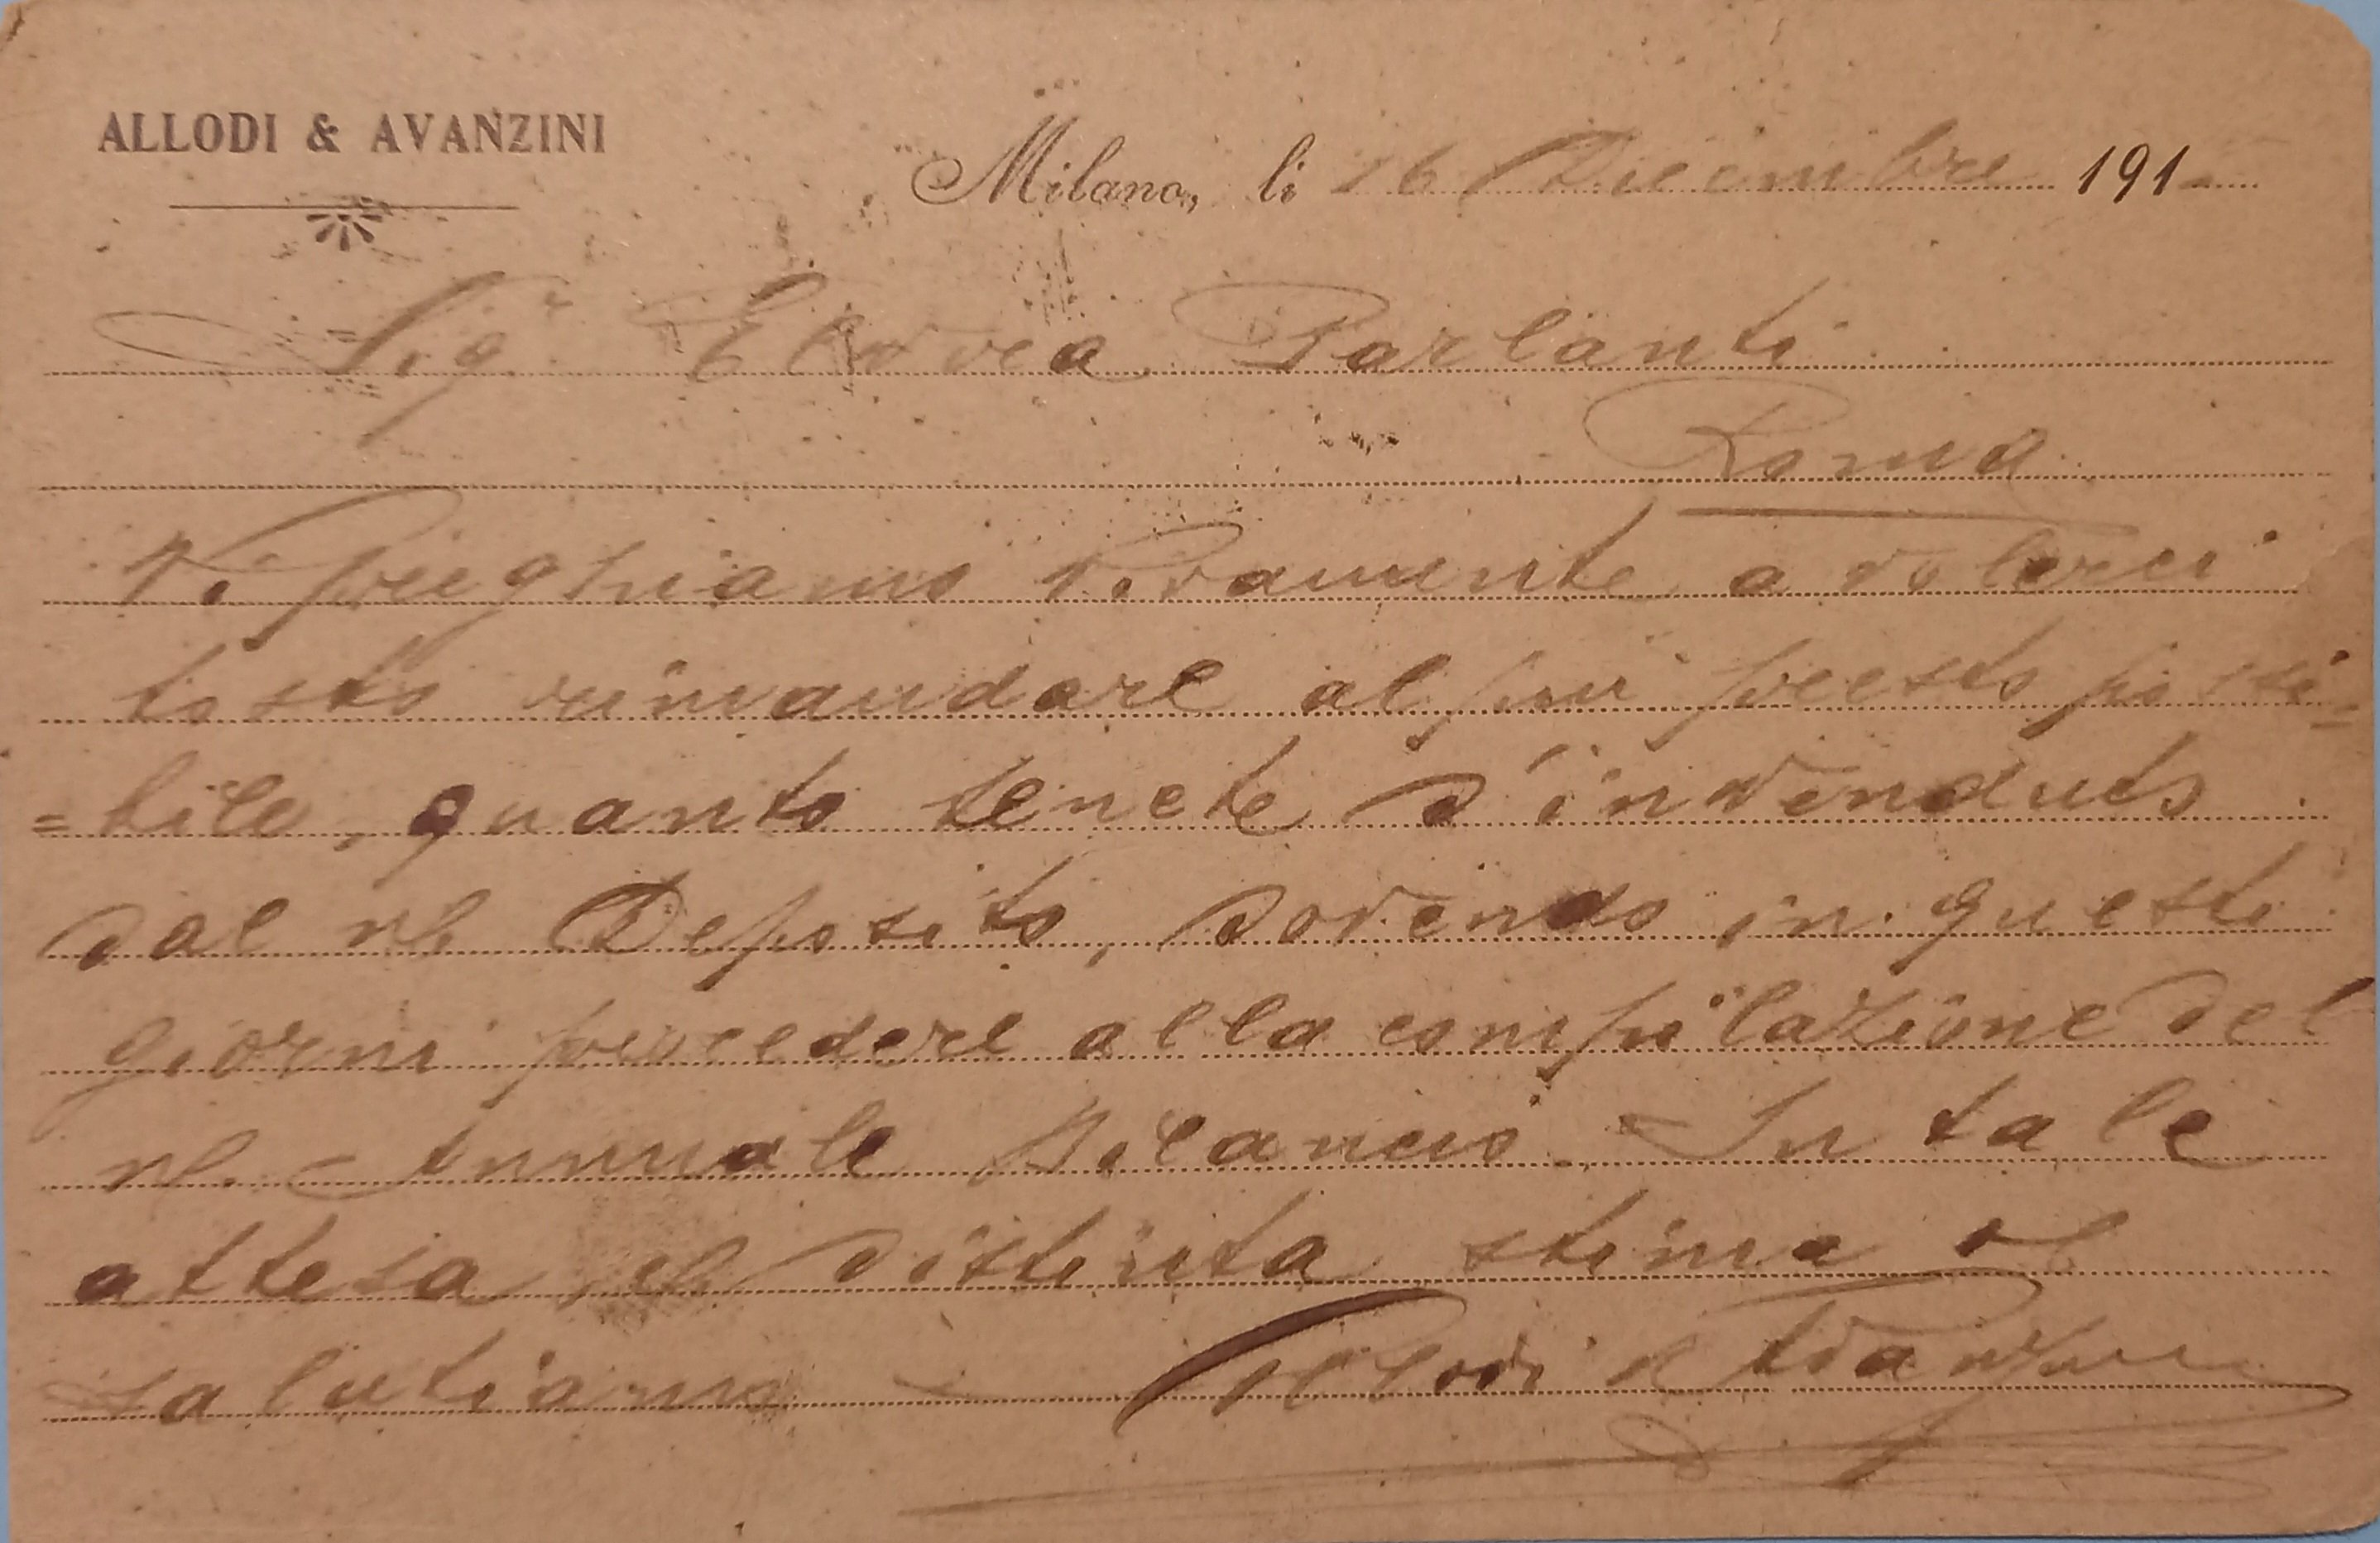 ALLODI & AVANZINI
Milano, li 16 Dicembre 191
Sigr Elvea Parlanti
Roma
Vi preghiamo vivamente a volerci
tosto rimandare al più presto possi=
=bile, quanto tenete d'invenduto
dal ns Deposito, dovendo in questi
giorni procedere alla compilazione del
ns. Annuale Bilancio. In tale
attesa distinta stima
salutiamo Allodi e Avanzini